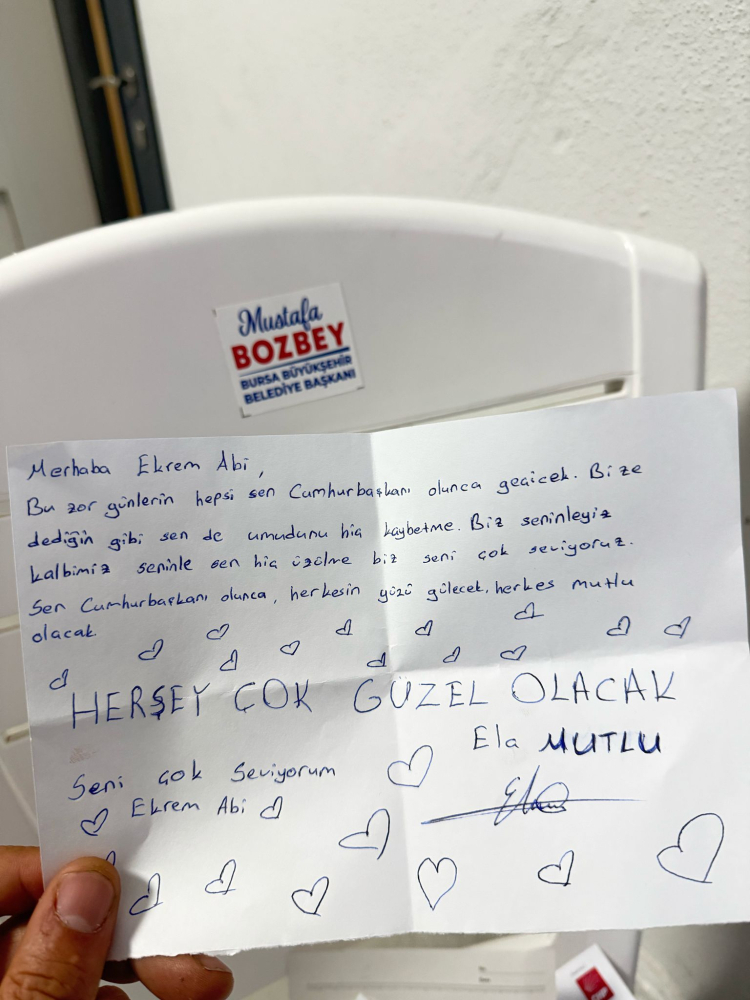 Mustafa
BOZBEY
BURSA BÜYÜKŞEHİR
BELEDİYE BAŞKANI
Merhaba Ekrem Abi,
Bu zor günlerin hepsi sen Cumhurbaşkanı olunca geçicek. Bize
dediğin gibi sen de umudunu hiç kaybetme. Biz seninleyiz
kalbimiz seninle sen hiç üzülme biz seni çok seviyoruz.
Sen Cumhurbaşkanı olunca, herkesin yüzü gülecek, herkes mutlu
olacak
HERŞEY ÇOK GÜZEL OLACAK
Ela MUTLU
Seni çok Seviyorum
Ekrem Abi